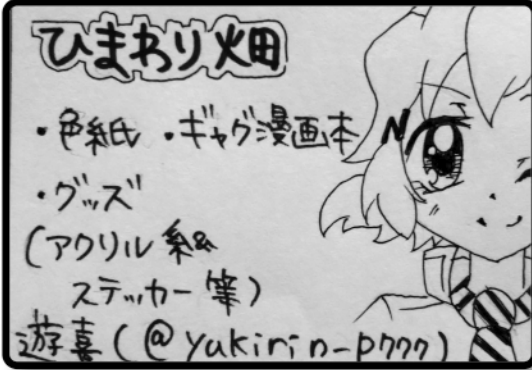 ひまわり畑
・色紙 ・ギャグ漫画本
・グッズ
(アクリル系&
ステッカー等)
遊喜(@yukirin_p777)